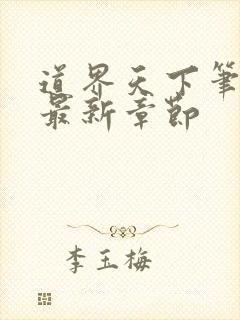 道界天下筆
最新章節
李玉梅